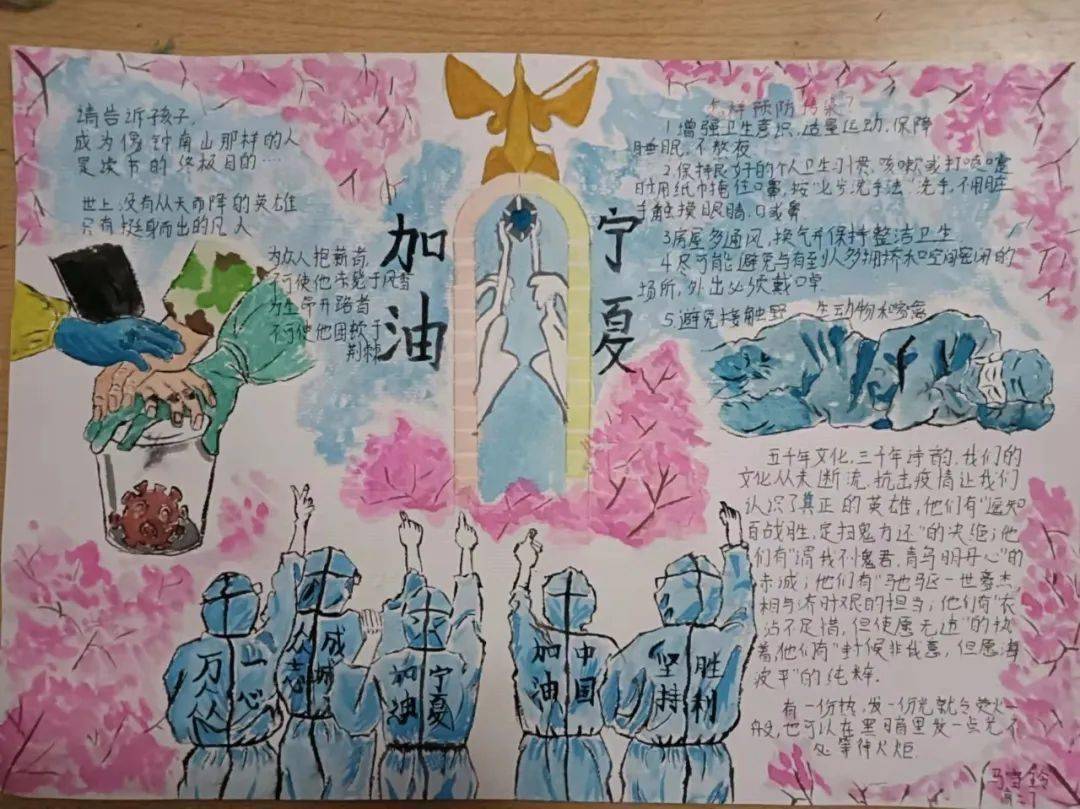 请告诉孩子,
成为像钟南山那样的人
是读书的终极目的…
世上没有从天而降的英雄
只有挺身而出的凡人
为众人抱薪者,
不可使他冻毙于风雪
为生命开路者
不可使他困
荆棘
加油
宁夏
怎样预防传染?
1.增强卫生意识,适量运动,保障
睡眠,不熬夜
2.保持良好的个人卫生习惯,咳嗽或打喷嚏
时用纸巾掩住口鼻,按"七步洗手法"洗手,不用脏
手触摸眼睛,口或鼻
3.房屋多通风,换气并保持整洁卫生
4.尽可能避免与有 人多拥挤和空间密闭的
场所,外出必须戴口罩
5.避免接触野 生动物和家禽
五千年文化,三千年诗韵,我们的
文化从未断流,抗击疫情让我们
认识了真正的英雄,他们有"逼知
百战胜,定扫鬼方还"的决绝;他
们有"谓我不愧君,青鸟明丹心"的
赤诚;他们有"驰驱一世豪杰,
相与济时艰的担当;他们有"衣
沾不足惜,但使愿无违"的执
着,他们有"封侯非我意,但愿海
波平"的纯粹.
有一份热,发一份光就令萤火一
般,也可以在黑暗里发一点光不
必等待火炬
万众
一心
众志
成城
加油
宁夏
加油
中国
坚持
胜利